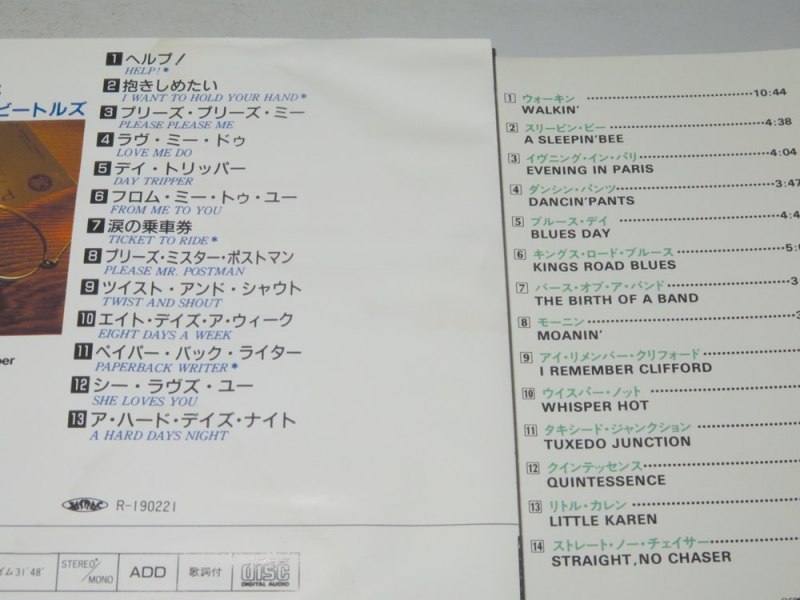 ビートルズ
1 ヘルプ！
HELP! *
2 抱きしめたい
I WANT TO HOLD YOUR HAND *
3 プリーズ・プリーズ・ミー
PLEASE PLEASE ME
4 ラヴ・ミー・ドゥ
LOVE ME DO
5 デイ・トリッパー
DAY TRIPPER
6 フロム・ミー・トゥ・ユー
FROM ME TO YOU
7 涙の乗車券
TICKET TO RIDE *
8 プリーズ・ミスター・ポストマン
PLEASE MR. POSTMAN
9 ツイスト・アンド・シャウト
TWIST AND SHOUT
10 エイト・デイズ・ア・ウィーク
EIGHT DAYS A WEEK
11 ペイパー・バック・ライター
PAPERBACK WRITER *
12 シー・ラヴズ・ユー
SHE LOVES YOU
13 ア・ハード・デイズ・ナイト
A HARD DAYS NIGHT
JASRAC R-190221
イム31'48" STEREO/MONO ADD 歌詞付 COMPACT disc DIGITAL AUDIO
1 ウォーキン 10:44
WALKIN'
2 スリーピン・ビー 4:38
A SLEEPIN'BEE
3 イヴニング・イン・パリ 4:04
EVENING IN PARIS
4 ダンシン・パンツ 3:47
DANCIN'PANTS
5 ブルース・デイ 4:4
BLUES DAY
6 キングス・ロード・ブルース 5:
KINGS ROAD BLUES
7 バース・オブ・ア・バンド 3
THE BIRTH OF A BAND
8 モーニン 3
MOANIN'
9 アイ・リメンバー・クリフォード
I REMEMBER CLIFFORD
10 ウイスパー・ノット
WHISPER HOT
11 タキシード・ジャンクション
TUXEDO JUNCTION
12 クインテッセンス
QUINTESSENCE
13 リトル・カレン
LITTLE KAREN
14 ストレート・ノー・チェイサー
STRAIGHT, NO CHASER